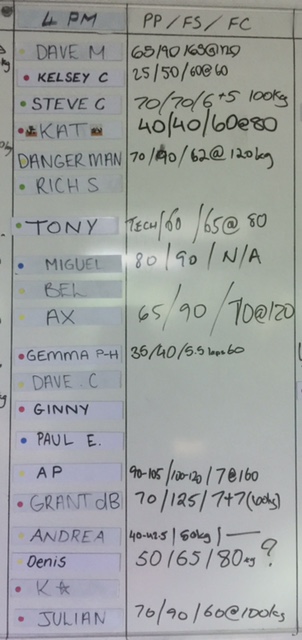 4 PM PP/FS/FC
DAVE M 65/90/165@120
KELSEY C 25/50/60@60
STEVE G 70/70/6+5 100kg
KAT 40/40/60@80
DANGERMAN 70/90/62@120kg
RICH S
TONY TECH/60/65@80
MIGUEL 80/90/N/A
BEL
AX 65/90/70@120
GEMMA P-H 35/40/5.5 laps 60
DAVE C
GINNY
PAUL E.
AP 90-105/100-120/7@160
GRANT dB 70/125/7+7(100kg)
ANDREA 40-42.5/50kg/—
Denis 50/65/80kg?
K☆
JULIAN 70/90/60@100kg